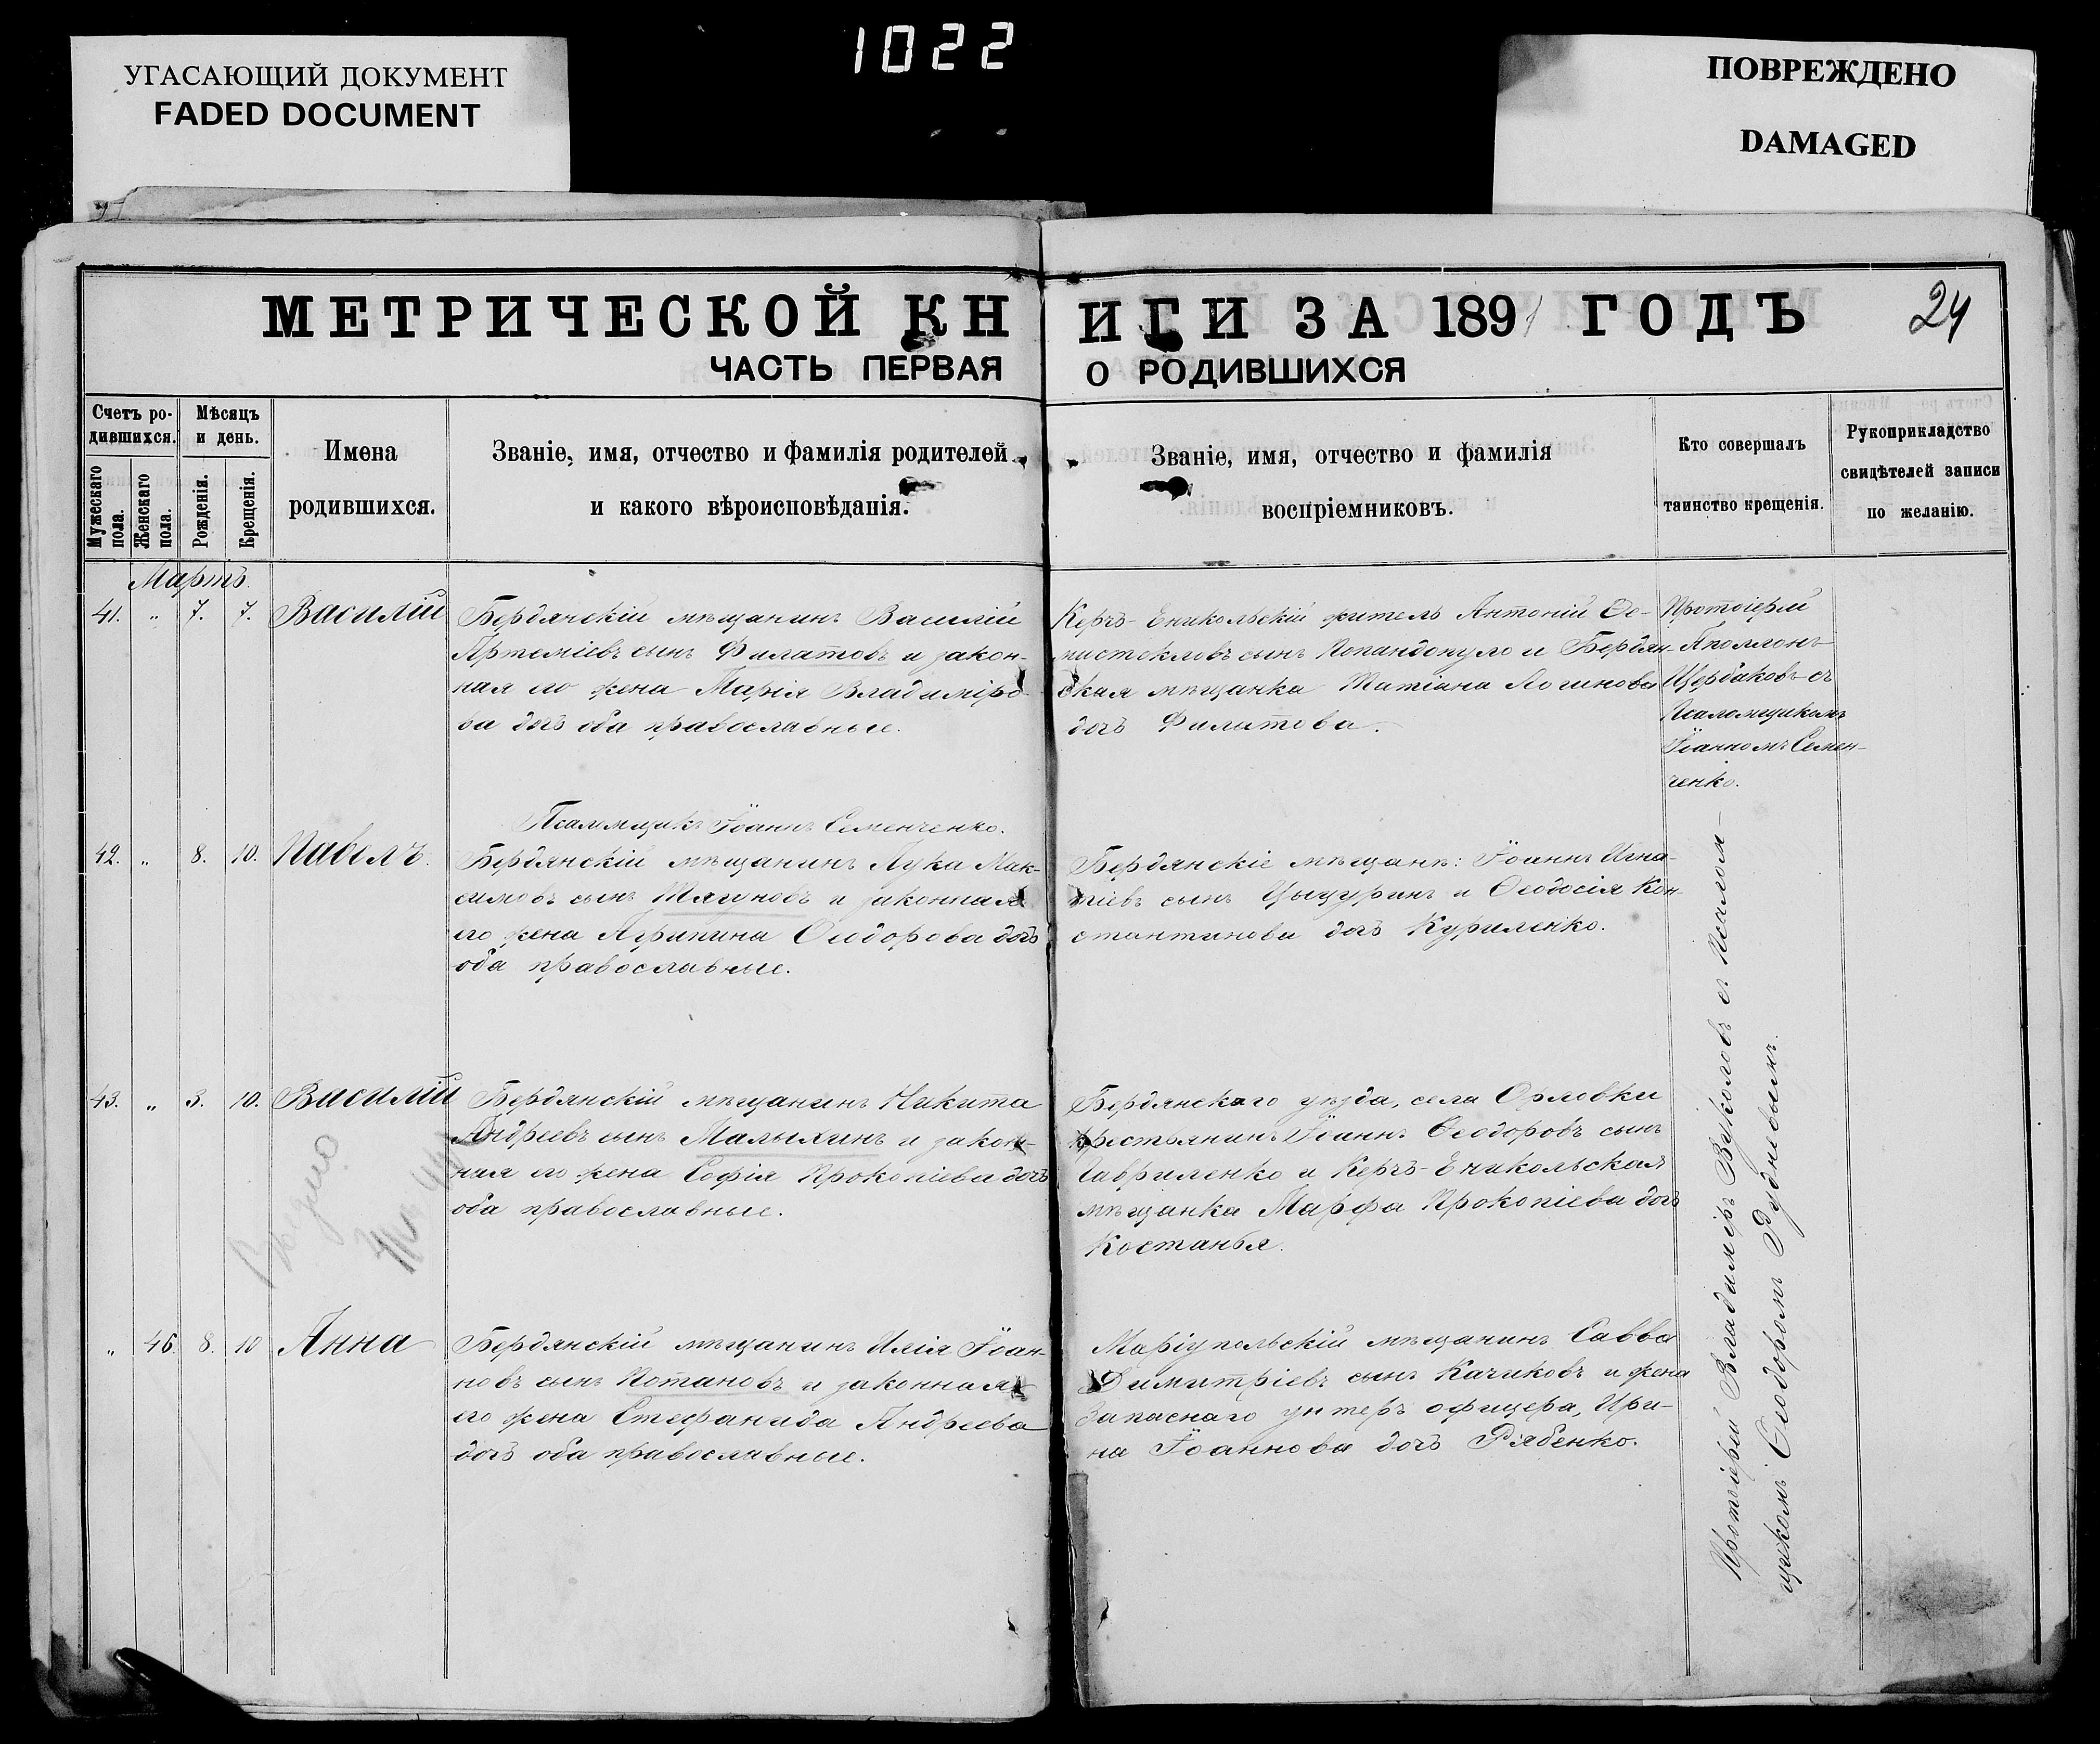 1022
УГАСАЮЩИЙ ДОКУМЕНТ
FADED DOCUMENT
ПОВРЕЖДЕНО
DAMAGED
МЕТРИЧЕСКОЙ КНИГИ ЗА 1891 ГОДЪ
24
ЧАСТЬ ПЕРВАЯ О РОДИВШИХСЯ
Счетъ ро-
дившихся.
Мужескаго
пола.
Женскаго
пола.
Мѣсяцъ
и день.
Рожденія.
Крещенія.
Имена
родившихся.
Званіе, имя, отчество и фамилія родителей
и какого вѣроисповѣданія.
Званіе, имя, отчество и фамилія
воспріемниковъ.
Кто совершалъ
таинство крещенія.
Рукоприкладство
свидѣтелей записи
по желанію.
Мартъ.
41. „ 7. 7. Василій
Бердянскій мѣщанинъ Василій
Артеміевъ сынъ Филатовъ и закон-
ная его жена Марія Владиміро-
ва дочь оба православные.
Керчь-Еникольскій житель Антоній Ѳе-
мистокловъ сынъ Попандопуло и Бердян-
ская мѣщанка Татіана Логинова
дочь Филатова.
Протоіерей
Аполлонъ
Щербаковъ съ
Псаломщикомъ
Іоанномъ Семен-
ченко.
Псаломщикъ Іоаннъ Семенченко.
42. „ 8. 10. Павелъ.
Бердянскій мѣщанинъ Лука Мак-
симовъ сынъ Тягуновъ и законная
его жена Агрипина Ѳеодорова дочь
оба православные.
Бердянскіе мѣщане: Іоаннъ Игна-
тіевъ сынъ Цыцуринъ и Ѳеодосія Кон-
стантинова дочь Куриленко.
43. „ 3. 10. Василій
Бердянскій мѣщанинъ Никита
Андреевъ сынъ Малыхинъ и закон-
ная его жена Софія Прокопіева дочь
оба православные.
Бердянскаго уѣзда, села Орловки
крестьянинъ Іоаннъ Ѳеодоровъ сынъ
Гавриленко и Керчь-Еникольская
мѣщанка Марфа Прокопіева дочь
Видно
„ 46. 8. 10 Анна
Бердянскій мѣщанинъ Илія Іоан-
новъ сынъ Потаповъ и законная
его жена Стефанида Андреева
дочь оба православные.
Маріупольскій мѣщанинъ Савва
Димитріевъ сынъ Качиковъ и жена
Запаснаго унтеръ офицера, Ири-
на Іоаннова дочь Рябенко.
Протоіерей Владиміръ Вуколовъ съ Псалом-
щикомъ Ѳеодоромъ Рудневымъ.